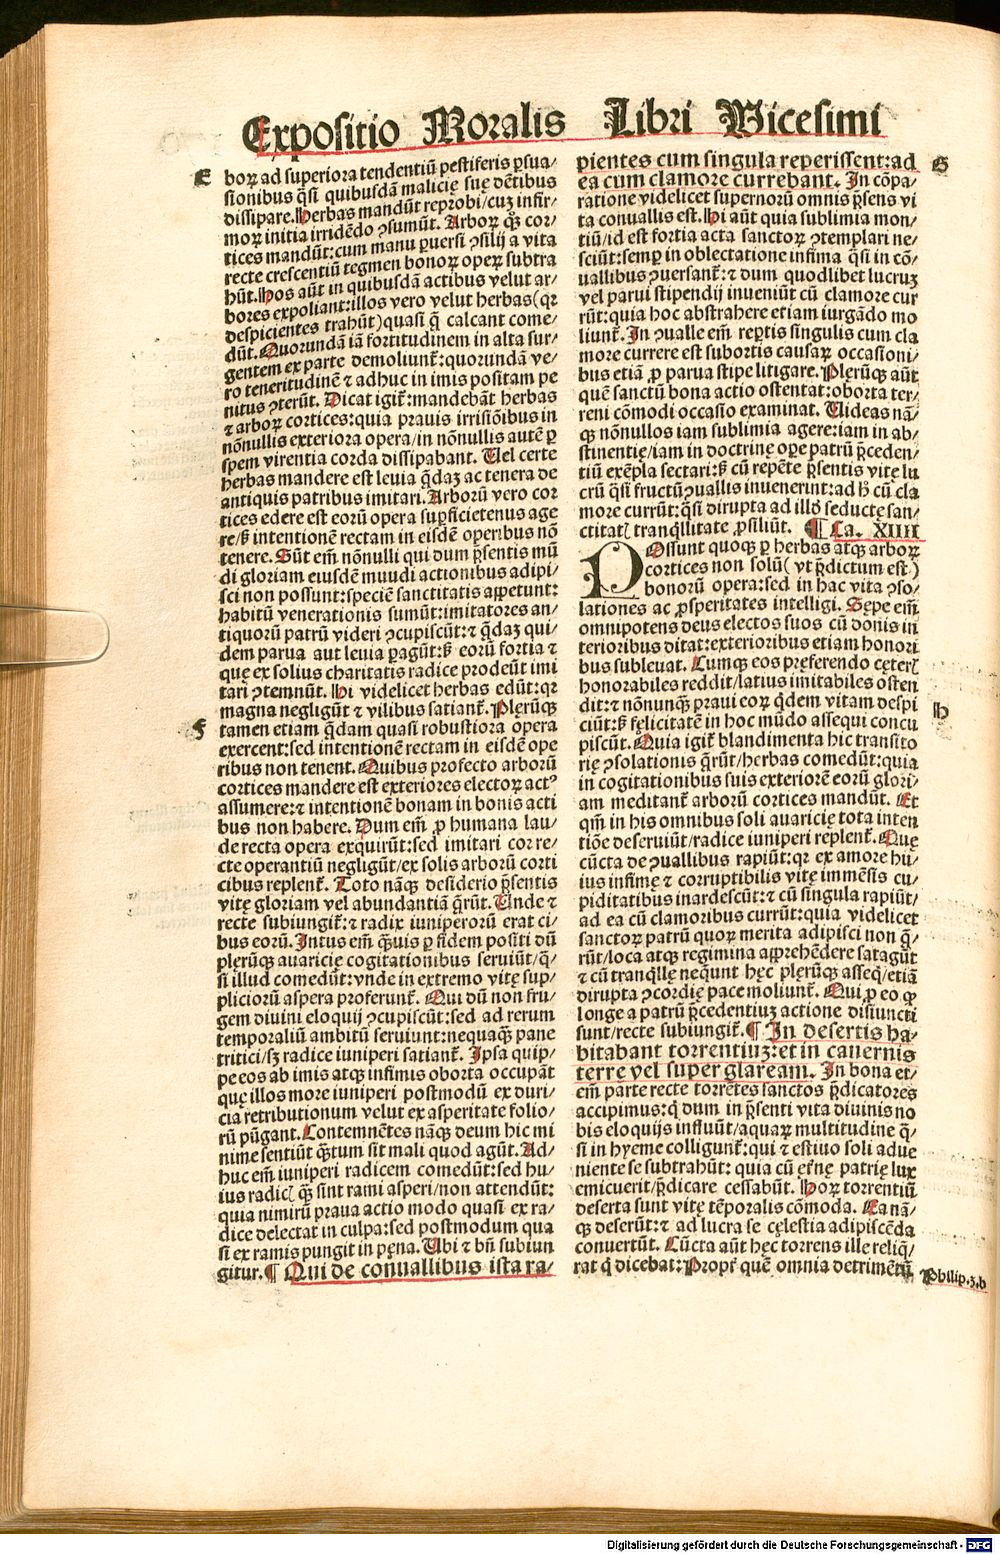 Expositio Moralis Libri Vicesimi
E
boꝝ ad superiora tendentiū pestiferis ꝑsua/
sionibus q̄si quibusdā malicię suę dētibus
dissipare. Herbas mandūt reprobi/cuꝫ infir/
moꝝ initia irridēdo ꝯsumūt. Arboꝝ q̄ꝫ cor/
tices mandūt: cum manu ꝑuersi ꝯsilij a vita
recte crescentiū tegmen bonoꝝ opeꝝ subtra
hūt. Hos aūt in quibusdā actibus velut ar/
bores expoliant: illos vero velut herbas (qꝛ
despicientes trahūt) quasi q̄ calcant come/
dūt. Quorundā iā fortitudinem in alta sur/
gentem ex parte demoliunt᷑: quorundā ve/
ro teneritudinē ⁊ adhuc in imis positam pe
nitus ꝯterūt. Dicat igit᷑: mandebāt herbas
⁊ arboꝝ cortices: quia prauis irrisiōibus in
nōnullis exteriora opera/in nōnullis autē ꝑ
spem virentia corda dissipabant. Uel certe
herbas mandere est leuia q̄daꝫ ac tenera de
antiquis patribus imitari. Arborū vero cor
tices edere est eorū opera suꝑficietenus age
re/ß intentionem rectam in eisdē operibus nō
tenere. Sūt em̄ nōnulli qui dum p̄sentis mū
di gloriam eiusdē muudi actionibus adipi/
sci non possunt: speciē sanctitatis appetunt:
habitū venerationis sumūt: imitatores an/
tiquorū patrū videri ꝯcupiscūt: ⁊ q̄daꝫ qui/
dem parua aut leuia ꝑagūt: ß eorū fortia ⁊
quę ex solius charitatis radice prodeūt imi
tari ꝯtemnūt. Hi videlicet herbas edūt: qꝛ
magna negligūt ⁊ vilibus satiant᷑. Plęrūqꝫ
F
tamen etiam q̄dam quasi robustiora opera
exercent: sed intentionē rectam in eisdē ope
ribus non tenent. Quibus profecto arborū
cortices mandere est exteriores electoꝝ actꝰ
assumere: ⁊ intentionē bonam in bonis acti
bus non habere. Dum em̄ ꝓ humana lau/
de recta opera exquirūt: sed imitari cor re/
cte operantiū negligūt/ex solis arborū corti
cibus replent᷑. Toto nāqꝫ desiderio p̄sentis
vitę gloriam vel abundantiā q̄rūt. Unde ⁊
recte subiungit᷑: ⁊ radix iuniperorū erat ci/
bus eorū. Intus em̄ q̄uis ꝑ fidem positi dū
plerūqꝫ auaricię cogitationibus seruiūt/q̄/
si illud comedūt: vnde in extremo vitę sup/
pliciorū aspera proferunt᷑. Qui dū non fru/
gem diuini eloquij ꝯcupiscūt: sed ad rerum
temporaliū ambitū seruiunt: nequaqꝫ pane
tritici/sꝫ radice iuniperi satiant᷑. Ipsa quip/
pe eos ab imis atqꝫ infimis oborta occupāt
quę illos more iuniperi postmodū ex duri/
cia retributionum velut ex asperitate folio/
rū pūgant. Contemnētes nāqꝫ deum hic mi
nime sentiūt q̄tum sit mali quod agūt. Ad/
huc em̄ iuniperi radicem comedūt: sed hu/
ius radicꝭ q̄ꝫ sint rami asperi/non attendūt:
quia nimirū praua actio modo quasi ex ra/
dice delectat in culpa: sed postmodum qua
si ex ramis pungit in pęna. Ubi ⁊ bn̄ subiun
gitur. ¶ Qui de conuallibus ista ra/
pientes cum singula reperissent: ad
G
ea cum clamore currebant. In cōpa/
ratione videlicet supernorū omnis p̄sens vi
ta conuallis est. Hi aūt quia sublimia mon/
tiū/id est fortia acta sanctoꝝ ꝯtemplari ne/
sciūt: semꝑ in oblectatione infima q̄si in cō/
uallibus ꝯuersant᷑: ⁊ dum quodlibet lucruꝫ
vel parui stipendij inueniūt cū clamore cur
rūt: quia hoc abstrahere etiam iurgādo mo
liunt᷑. In ꝯualle em̄ reꝑtis singulis cum cla
more currere est subortis causaꝝ occasioni/
bus etiā ꝓ parua stipe litigare. Plęrūqꝫ aūt
quē sanctū bona actio ostentat: oborta ter/
reni cōmodi occasio examinat. Uideas nā/
qꝫ nōnullos iam sublimia agere: iam in ab/
stinentię/iam in doctrinę ope patrū p̄ceden/
tiū exēpla sectari: ß cū repēte p̄sentis vitę lu
crū q̄si fructū ꝯuallis inuenerint: ad h̄ cū cla
more currūt: q̄si dirupta ad illoꝝ seductę san/
ctitatꝭ tranq̄llitate ꝓsiliūt. ¶ Ca. XIIII
POssunt quoqꝫ ꝑ herbas atqꝫ arboꝝ
cortices non solū (vt p̄dictum est)
bonorū opera: sed in hac vita ꝯso/
lationes ac ꝓsperitates intelligi. Sępe em̄
omnipotens deus electos suos cū donis in
terioribus ditat: exterioribus etiam honori
bus subleuat. Cumqꝫ eos pręferendo cęterꝭ
honorabiles reddit/latius imitabiles osten
H
dit: ⁊ nōnunqꝫ praui eoꝝ q̄dem vitam despi
ciūt: ß fęlicitatē in hoc mūdo assequi concu
piscūt. Quia igit᷑ blandimenta hic transito
rię ꝯsolationis q̄rūt/herbas comedūt: quia
in cogitationibus suis exteriorē eorū glori/
am meditant᷑ arborū cortices mandūt. Et
qm̄ in his omnibus soli auaricię tota inten
tiōe deseruiūt/radice iuniperi replent᷑. Quę
cūcta de ꝯuallibus rapiūt: qꝛ ex amore hu/
ius infimę ⁊ corruptibilis vitę immēsis cu/
piditatibus inardescūt: ⁊ cū singula rapiūt/
ad ea cū clamoribus currūt: quia videlicet
sanctoꝝ patrū quoꝝ merita adipisci non q̄/
rūt/loca atqꝫ regimina apprehēdere satagūt
⁊ cū tranq̄lle neq̄unt hęc plęrūqꝫ asseq̄/etiā
dirupta ꝯcordię pace moliunt᷑. Qui ꝓ eo qꝙ
longe a patrū p̄cedentiuꝫ actione disiuncti
sunt/recte subiungit᷑. ¶ In desertis ha/
bitabant torrentiuꝫ: et in cauernis
terrę vel super glaream. In bona et/
em̄ parte recte torrētes sanctos p̄dicatores
accipimus: q̄ dum in p̄senti vita diuinis no
bis eloquijs influūt/aquaꝝ multitudine q̄/
si in hyeme colligunt᷑: qui ⁊ estiuo soli adue
niente se subtrahūt: quia cū ęt̄nę patrię lux
emicuerit/p̄dicare cessabūt. Hoꝝ torrentiū
deserta sunt vitę tēporalis cōmoda. Ea nā/
qꝫ deserūt: ⁊ ad lucra se cęlestia adipiscēda
conuertūt. Cūcta aūt hęc torrens ille reliq̄/
rat q̄ dicebat: Propt̄ quē omnia detrimētū
Philip.3.b
Digitalisierung gefördert durch die Deutsche Forschungsgemeinschaft - DFG